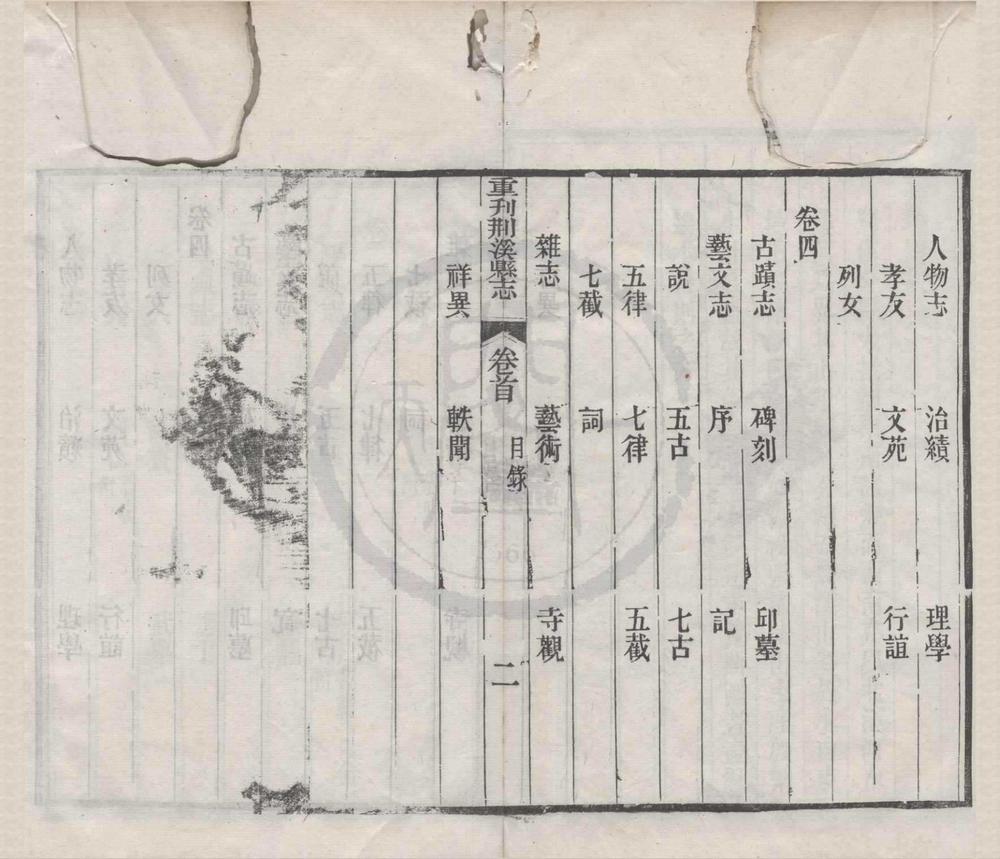 人物志　治績　理學
孝友　文苑　行誼
列女
卷四
古蹟志　碑刻　邱墓
藝文志　序　記
說　五古　七古
五律　七律　五截
七截　詞
雜志　藝術　寺觀
重刊荆溪縣志　卷首　目錄　二
祥異　軼聞